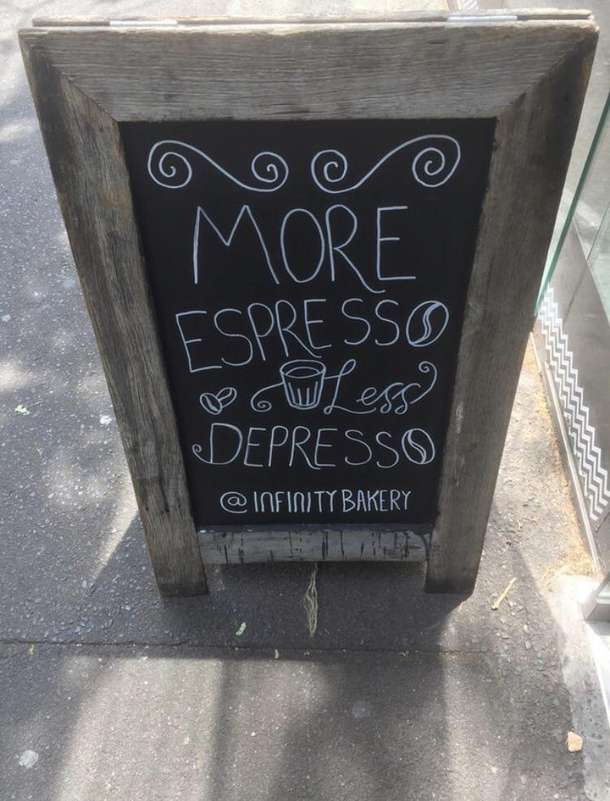 MORE
ESPRESSO
Less
DEPRESSO
@INFINITYBAKERY